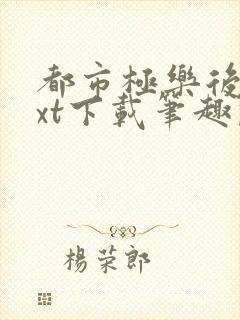 都市極樂後
xt下載筆趣
楊荣郎